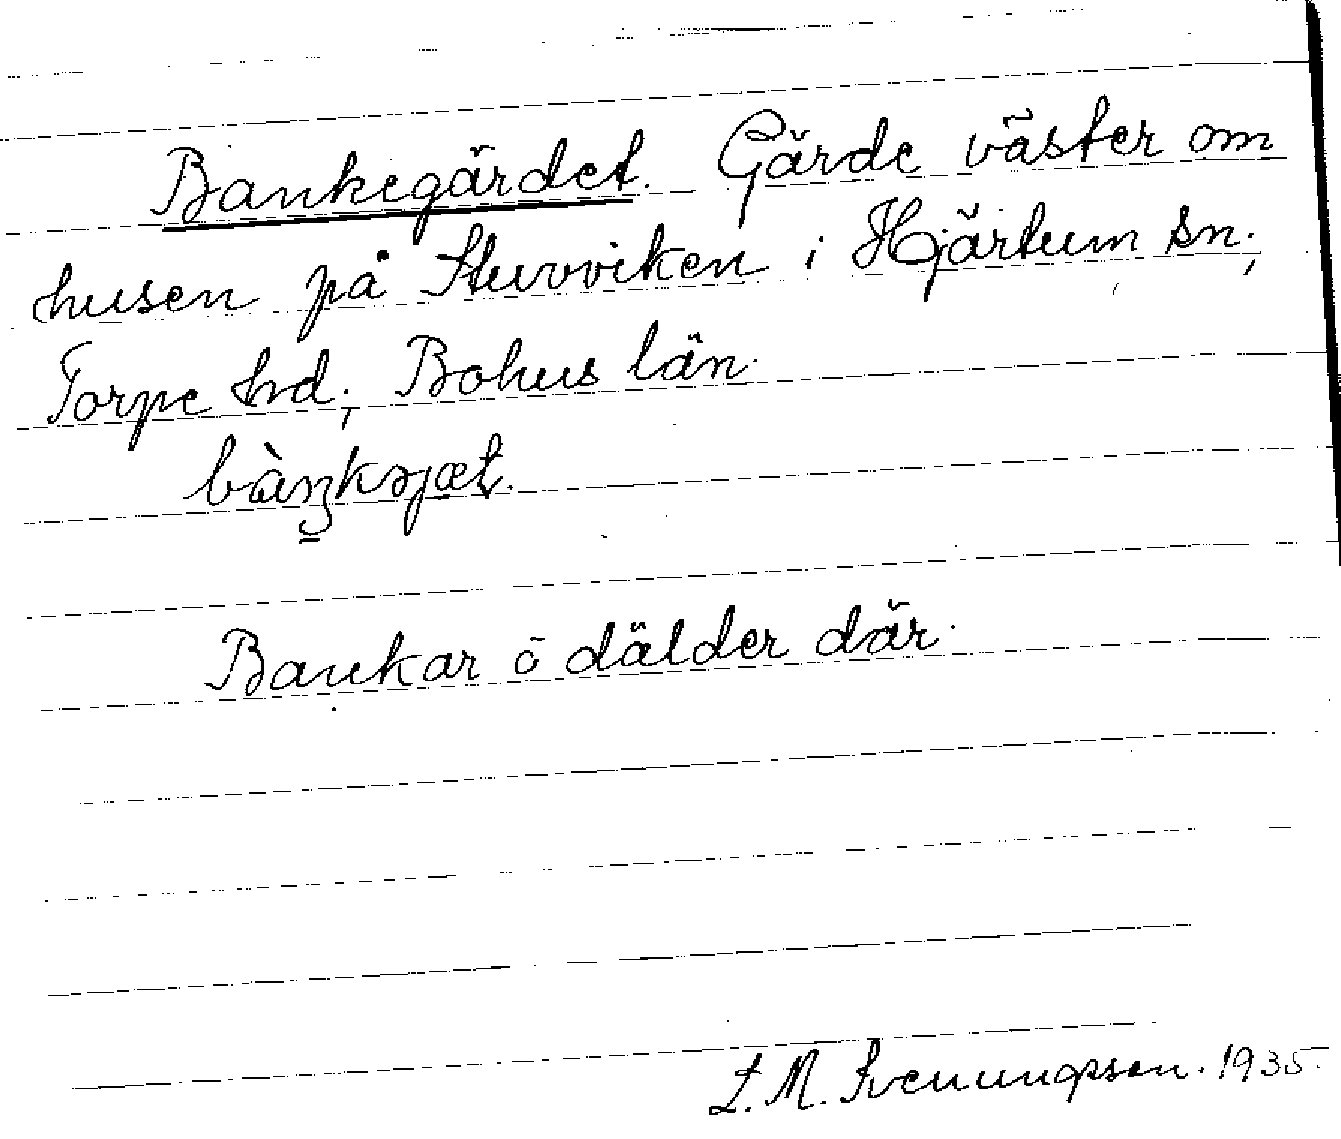 Bankegärdet. Gärde väster om
husen på Stuvviken i Hjärtum sn.,
Torpe hd., Bohus län.
Bankar o dälder där.
L. M. Svenungsson. 1935.